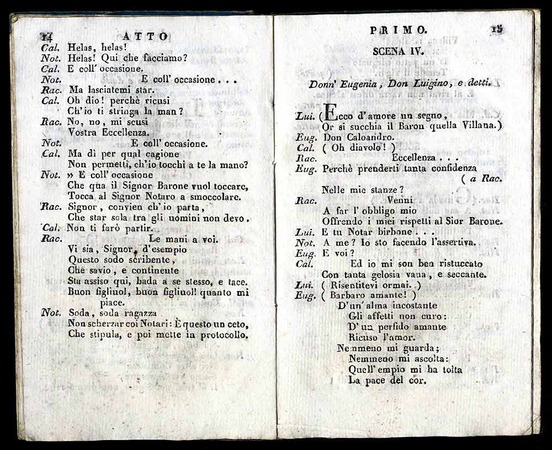 14 ATTO
Cal. Helas, helas!
Not. Helas! Qui che facciamo?
Cal. E coll' occasione.
Not. E coll' occasione . . .
Rac. Ma lasciatemi star.
Cal. Oh dio! perchè ricusi
Ch'io ti stringa la man?
Rac. No, no, mi scusi
Vostra Eccellenza.
Not. E coll' occasione.
Cal. Ma di per qual cagione
Non permetti, ch'io tocchi a te la mano?
Not. » E coll' occasione
Che qua il Signor Barone vuol toccare,
Tocca al Signor Notaro a smoccolare.
Rac. Signor, convien ch'io parta,
Che star sola tra gli uomini non devo.
Cal. Non ti farò partir.
Rac. Le mani a voi.
Vi sia, Signor, d'esempio
Questo sodo scribente,
Che savio, e continente
Sta assiso qui, bada a se stesso, e tace.
Buon figliuol, buon figliuol! quanto mi
piace.
Not. Soda, soda ragazza
Non scherzar coi Notari: E questo un ceto,
Che stipula, e poi mette in protocollo.
PRIMO. 15
SCENA IV.
Donn' Eugenia, Don Luigino, e detti.
Lui. (Ecco d'amore un segno,
Or si succhia il Baron quella Villana.)
Eug. Don Caloandro.
Cal. ( Oh diavolo! )
Rac. Eccellenza . . .
Eug. Perchè prenderti tanta confidenza
( a Rac.
Nelle mie stanze?
Rac. Venni
A far l'obbligo mio
Offrendo i miei rispetti al Sior Barone.
Lui. E tu Notar birbone . . .
Not. A me? Io sto facendo l'assertiva.
Eug. E voi?
Cal. Ed io mi son ben ristuccato
Con tanta gelosia vana, e seccante.
Lui. ( Risentitevi ormai. )
Eug. ( Barbaro amante! )
D'un' alma incostante
Gli affetti non curo:
D' un perfido amante
Ricuso l'amor.
Ne nmeno mi guarda;
Nemmeno mi ascolta:
Quell' empio mi ha tolta
La pace del cor.